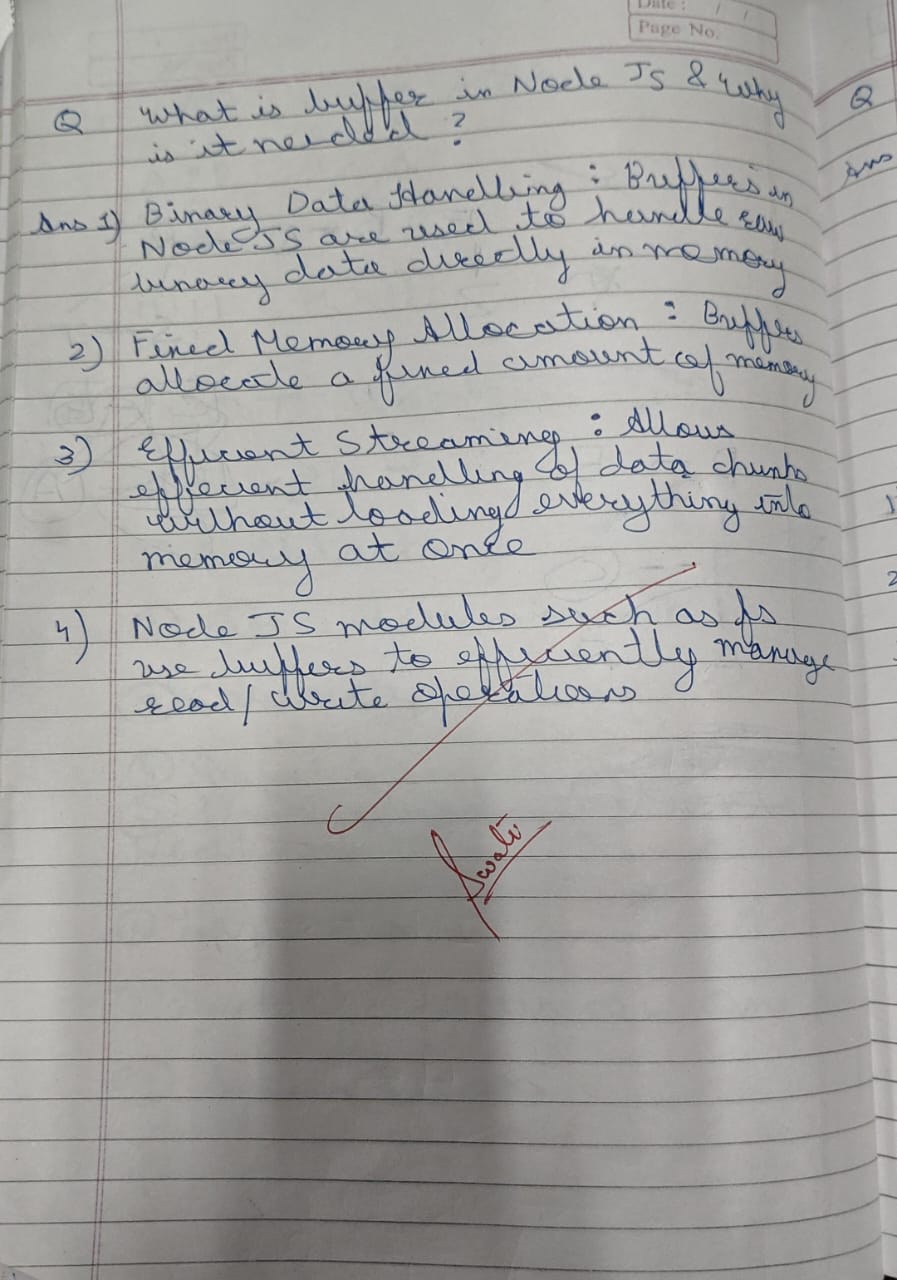 Date : / /
Page No.
Q What is buffer in Node JS & Why
is it needed ?
Ans 1) Binary Data Handling : Buffers in
Node JS are used to handle raw
binary data directly in memory
2) Fixed Memory Allocation : Buffers
allocate a fixed amount of memory
3) Efficient Streaming : Allows
efficient handling of data chunks
without loading everything into
memory at once
4) Node JS modules such as fs
use buffers to efficiently manage
read / write operations
Swati
Q
Ans
1
2